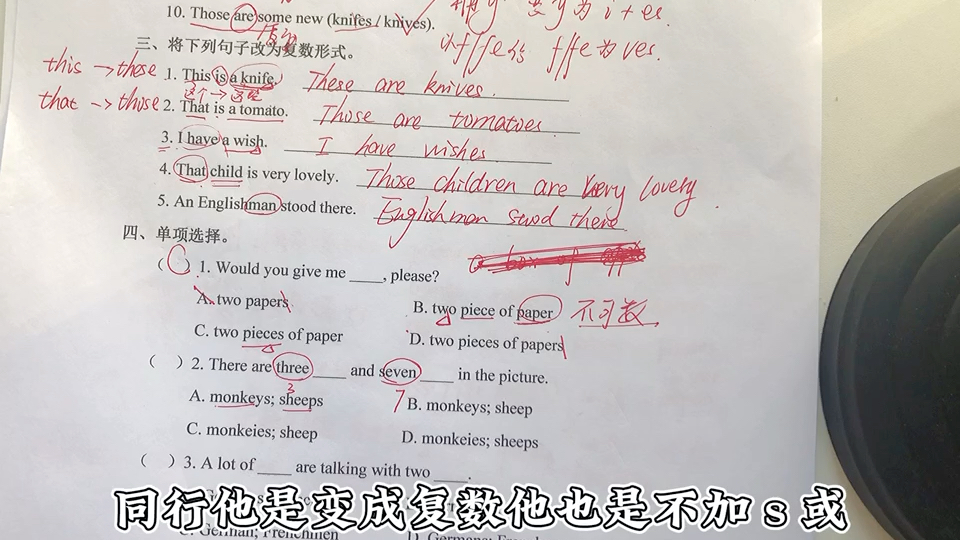 10. Those are some new (knifes / knives).
变 y 为 i + es.
以 f/fe 结 f/fe 为 ves.
三、将下列句子改为复数形式。
this → those
1. This is a knife. These are knives.
这个 → 这些
that → those
2. That is a tomato. Those are tomatoes
3. I have a wish. I have wishes
4. That child is very lovely. Those children are very lovely.
5. An Englishman stood there. Englishman stood there
四、单项选择。
( C ) 1. Would you give me ____, please?
A. two papers
B. two piece of paper 不可数.
C. two pieces of paper
D. two pieces of papers
( ) 2. There are three ____ and seven ____ in the picture.
3 7
A. monkeys; sheeps
B. monkeys; sheep
C. monkeies; sheep
D. monkeies; sheeps
( ) 3. A lot of ____ are talking with two ____.
同行他是变成复数他也是不加 s 或